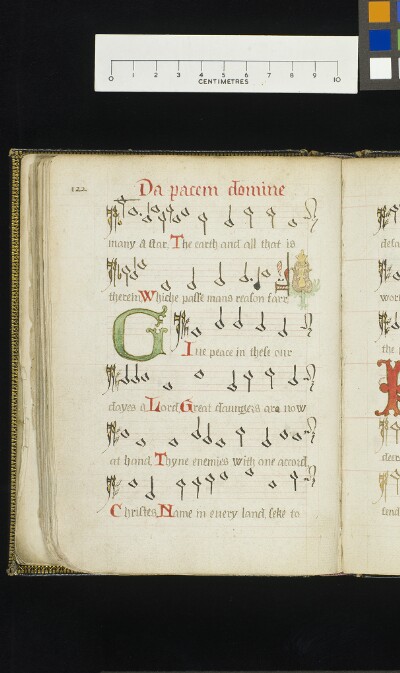 0 1 2 3 4 5 6 7 8 9 10
CENTIMETRES
122
Da pacem domine
many a star. The earth and all that is
therein Whiche passe mans reason farr
Giue peace in these our
dayes o Lord Great daungers are now
at hand Thyne enemies with one accord
Christes Name in euery land seke to
desa
wor
the
decre
find